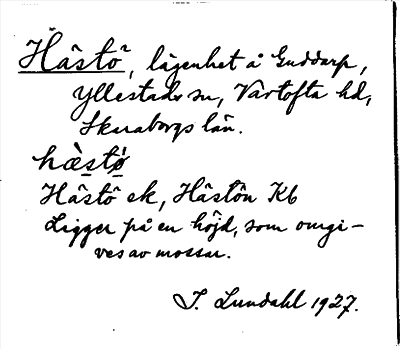 Hästö, lägenhet å Guddarp,
Yllestads sn, Vartofta hd,
Skaraborgs län.
hæ̀stø̀
Hästö ek, Hästön Kb
Ligger på en höjd, som omgi-
ves av mossar.
J. Lundahl 1927.